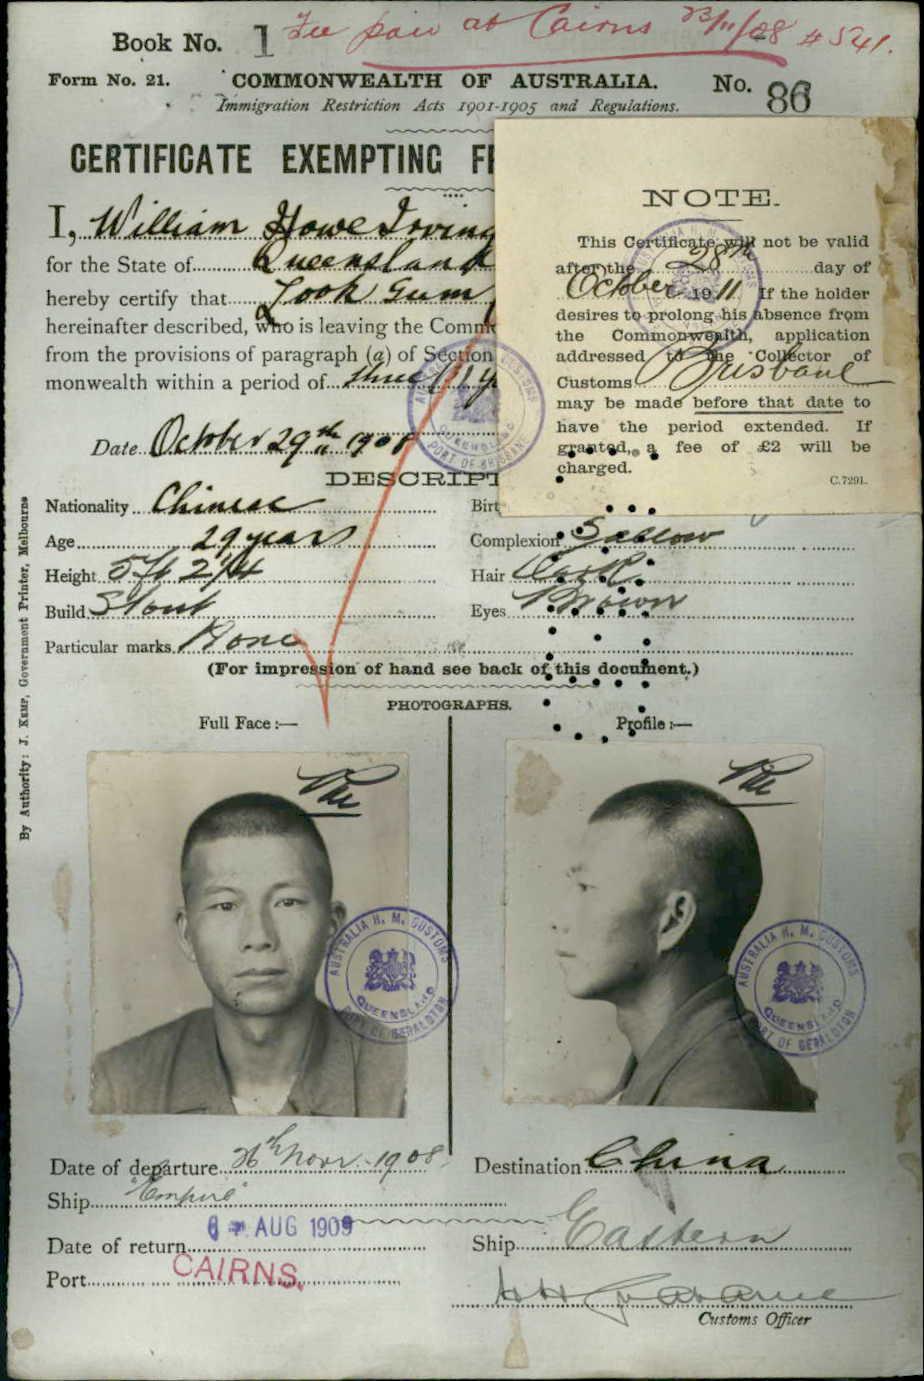 Book No. 1 Fee paid at Cairns 23/11/08 # 541.
Form No. 21. COMMONWEALTH OF AUSTRALIA. No. 86
Immigration Restriction Acts 1901-1905 and Regulations.
CERTIFICATE EXEMPTING FR
I, William Howe Irving
for the State of Queensland
hereby certify that Look Gum
hereinafter described, who is leaving the Comm
from the provisions of paragraph (a) of Section
monwealth within a period of three
Date October 29th 1908
NOTE.
This Certificate will not be valid
after the 28th day of
October 1911 If the holder
desires to prolong his absence from
the Commonwealth, application
addressed to the Collector of
Customs Brisbane
may be made before that date to
have the period extended. If
granted, a fee of £2 will be
charged.
C.7291.
DESCRIPT
Nationality Chinese Birt
Age 29 years Complexion Sallow
Height 5ft 2 1/4 Hair Dark
Build Stout Eyes Brown
Particular marks None
(For impression of hand see back of this document.)
PHOTOGRAPHS.
Full Face:— Profile:—
AUSTRALIA H. M. CUSTOMS
QUEENSLAND
PORT OF BRISBANE
AUSTRALIA H. M. CUSTOMS
QUEENSLAND
PORT OF GERALDTON
AUSTRALIA H. M. CUSTOMS
QUEENSLAND
PORT OF GERALDTON
Date of departure 26th Novr. 1908 Destination China
Ship "Empire"
6 - AUG 1909
Date of return Ship Eastern
Port CAIRNS.
Customs Officer
By Authority: J. KEMP, Government Printer, Melbourne